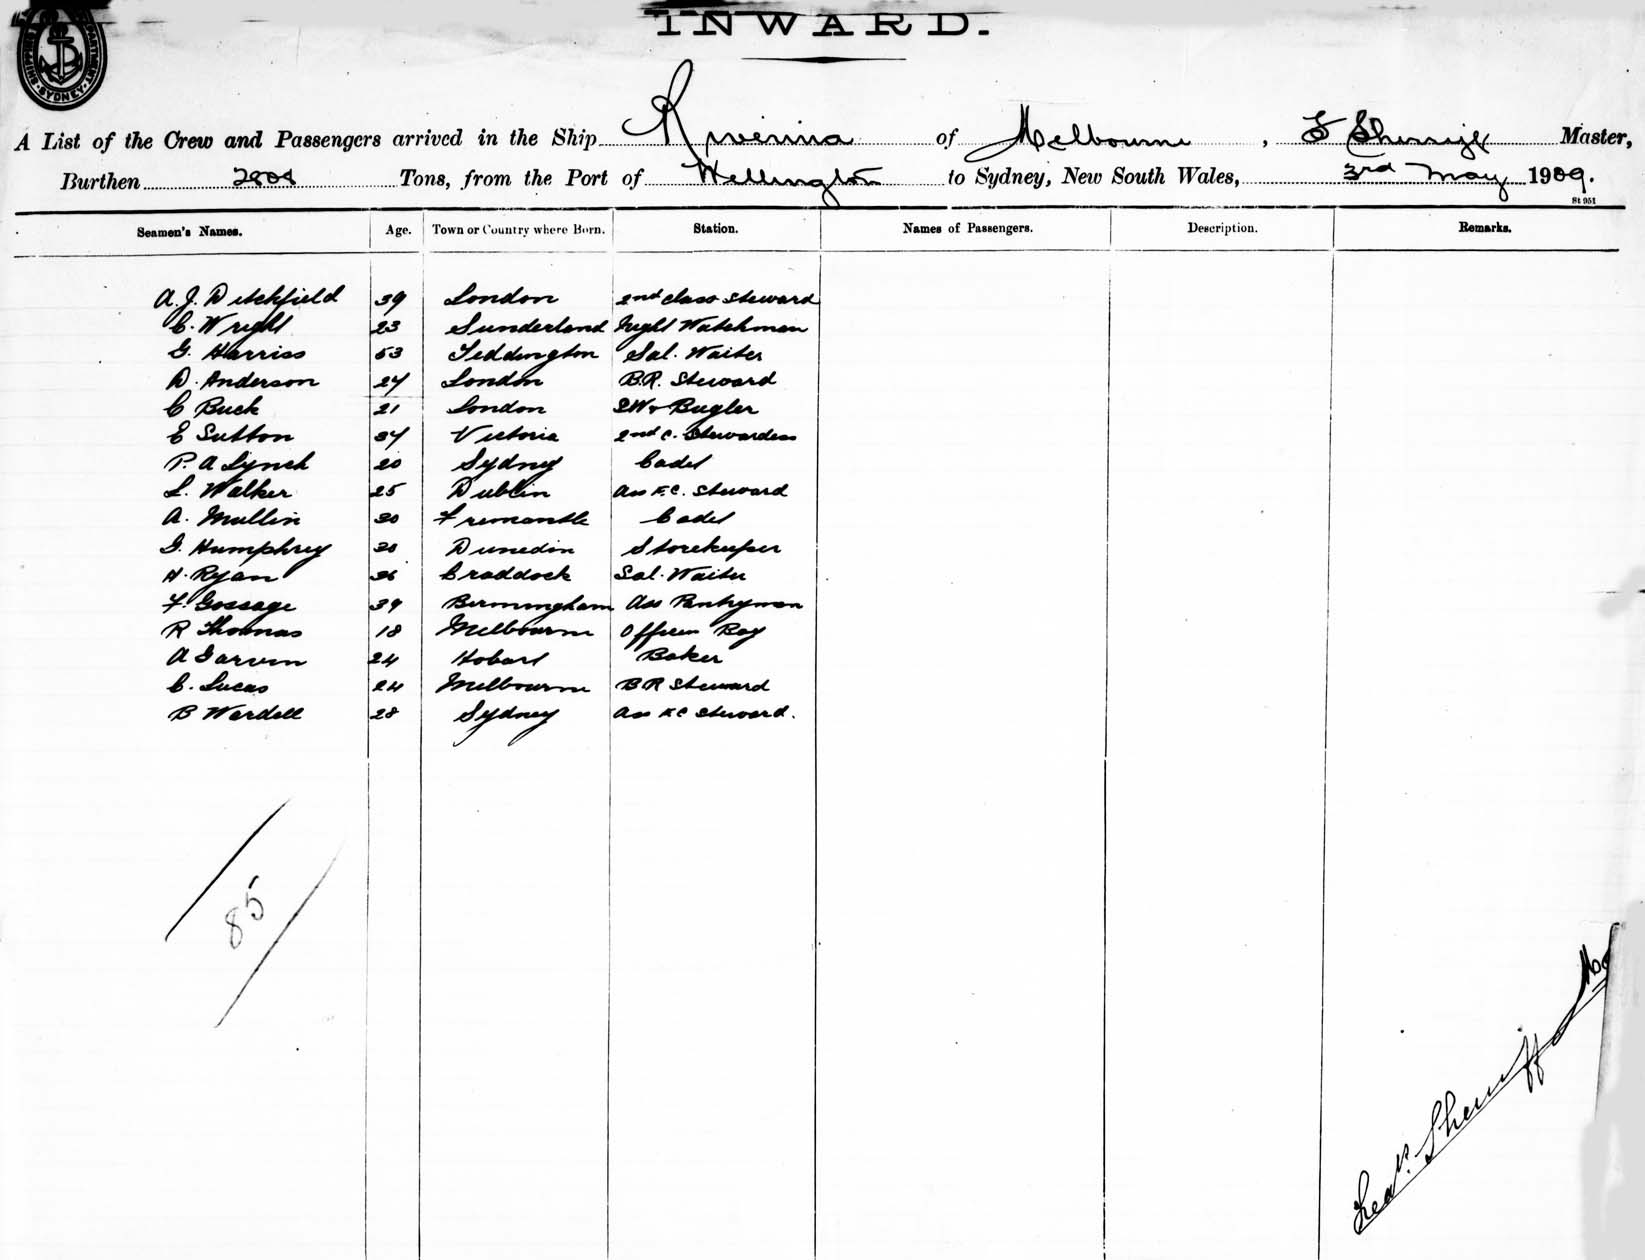 INWARD.
SYDNEY
A List of the Crew and Passengers arrived in the Ship Riverina of Melbourne, F Sherriff Master,
Burthen 2808 Tons, from the Port of Wellington to Sydney, New South Wales, 3rd May 1909.
St 951
Seamen's Names. Age. Town or Country where Born. Station. Names of Passengers. Description. Remarks.
A. J. Ditchfield 39 London 2nd Class Steward
C. Wright 23 Sunderland Night Watchman
G. Harriss 53 Teddington Sal. Waiter
D. Anderson 24 London B.R. Steward
C Buck 21 London SW & Bugler
E Sutton 34 Victoria 2nd C. Stewardess
P. A Lynch 20 Sydney Cadet
L. Walker 25 Dublin Ass F.C. Steward
A. Mullin 20 Fremantle Cadet
G. Humphrey 30 Dunedin Storekeeper
H. Ryan 36 Craddock Sal. Waiter
F. Gossage 39 Birmingham Ass Pantryman
R Thomas 18 Melbourne Officers Boy
A Garvin 24 Hobart Baker
C. Lucas 24 Melbourne B R Steward
B Wardell 28 Sydney Ass F.C Steward.
85
Fredk. Sherriff